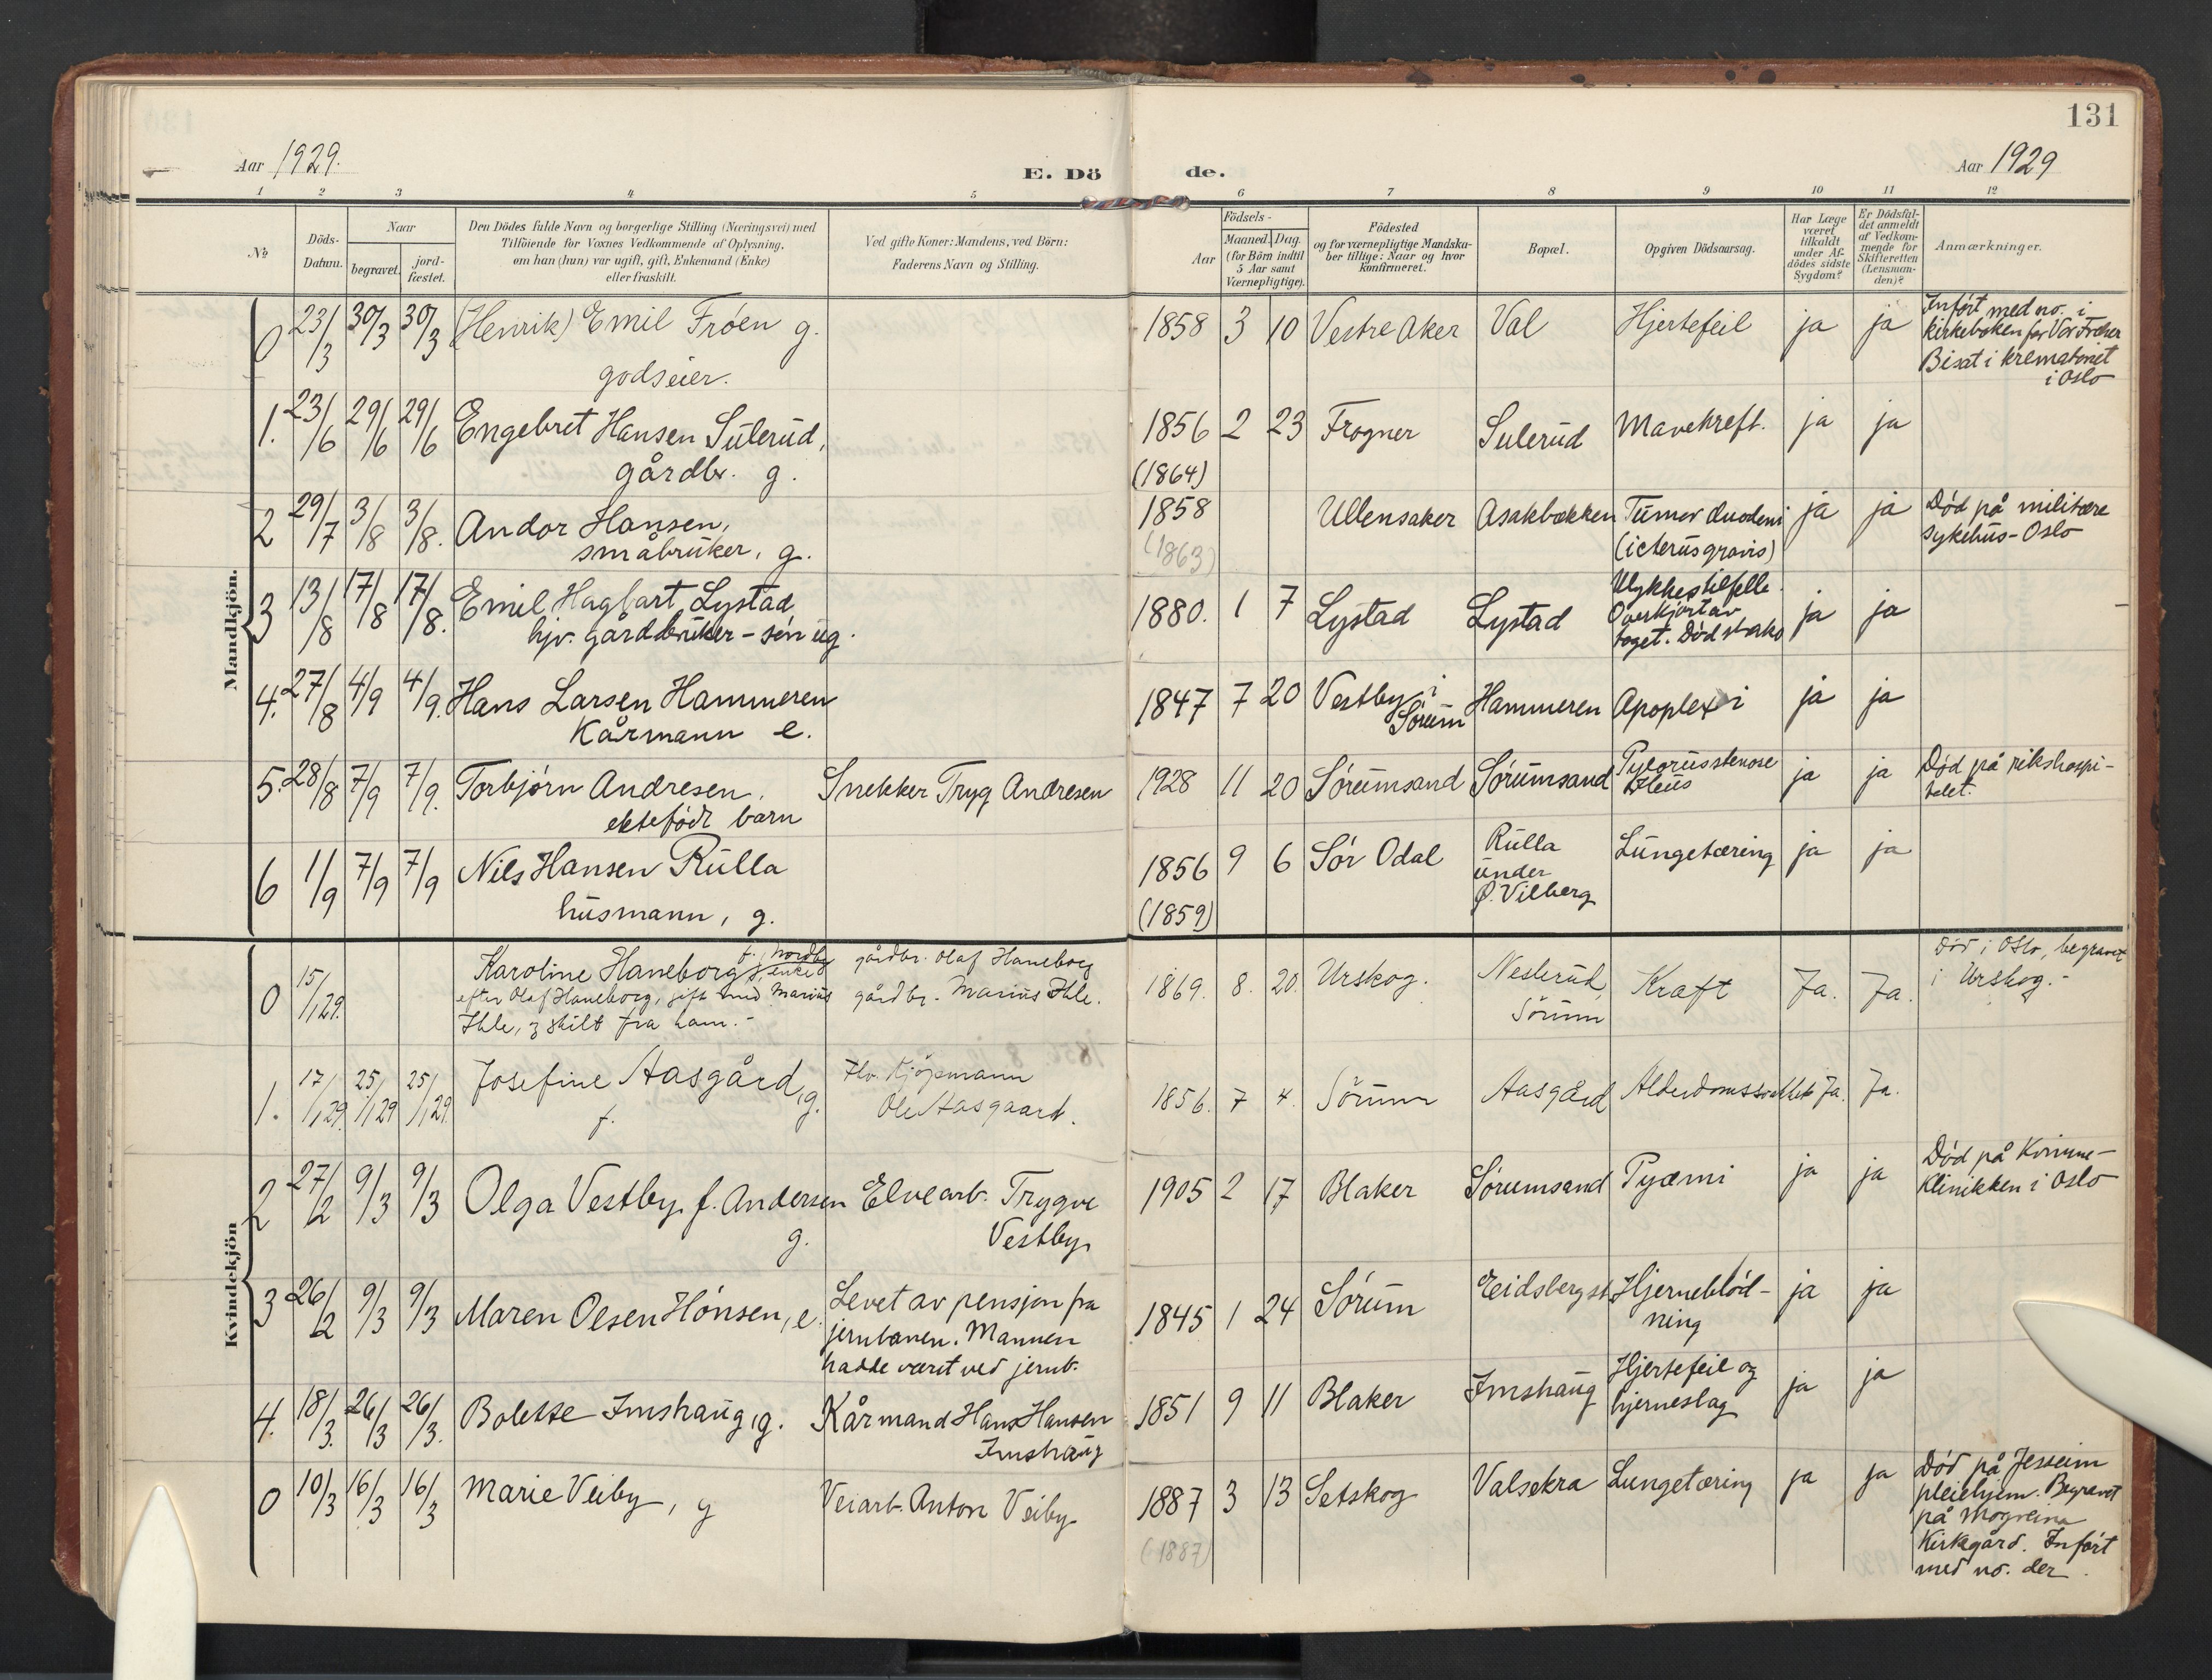 131
Aar 1929.
E. Dö de.
Aar 1929
1 2 3 4 5 6 7 8 9 10 11 12
No
Döds-Datum.
Naar
begravet.
jord-fæstet.
Den Dödes fulde Navn og borgerlige Stilling (Næringsvei) med
Tilföiende for Voxnes Vedkommende af Oplysning,
om han (hun) var ugift, gift, Enkemand (Enke)
eller fraskilt.
Ved gifte Koner: Mandens, ved Börn:
Faderens Navn og Stilling.
Födsels-
Aar
Maaned. Dag.
(for Börn indtil
5 Aar samt
Værnepligtige).
Födested
og for værnepligtige Mandska-
ber tillige: Naar og hvor
konfirmeret.
Bopæl.
Opgiven Dödsaarsag.
Har Læge
været
tilkaldt
under Af-
dödes sidste
Sygdom?
Er Dödsfal-
det anmeldt
af Vedkom-
mende for
Skifteretten
(Lensman-
den)?
Anmærkninger.
Mandkjön.
0 23/3 30/3 30/3 (Henrik) Emil Fróen g.
godseier.
1858 3 10 Vestre Aker Val Hjertefeil ja ja
Infört med no. i
kirkeboken for Vor Frelser
Bisat i krematoriet
i Oslo
1. 23/6 29/6 29/6 Engebret Hansen Sulerud,
gårdbr. g.
1856 2 23 Frogner Sulerud Mavekreft. ja ja
(1864)
2 29/7 3/8 3/8. Andor Hansen,
småbruker, g.
1858 Ullensaker Asakbakken Tumor duodeni ja ja
(1863)
(icterus gravis)
Död på militære
sykehus - Oslo
3 13/8 17/8 17/8. Emil Hagbart Lystad
hjv. gårdbruker - sön ug.
1880. 1 7 Lystad Lystad Ulykkestilfelle.
Overkjört av
toget. Död straks
ja ja
4. 27/8 4/9 4/9. Hans Larsen Hammeren
Kårmann e.
1847 7 20 Vestby i
Sörum
Hammeren Apoplexi ja ja
5. 28/8 7/9 7/9. Torbjörn Andresen,
ektefödt barn
Snekker Tryg Andresen
1928 11 20 Sörumsand Sörumsand Pylorusstenose
Ileus
ja ja
Död på rikshospi-
talet.
6 1/9 7/9 7/9 Nils Hansen Rulla
husmann, g.
1856 9 6 Sör Odal Rulla
under
Ö. Vilberg
Lungetæring ja ja
(1859)
Kvindekjön
0 15/1,29. Karoline Haneborg f. Nordby enke
efter Olaf Haneborg, gift med Marius
Ihle, z skilt fra ham.-
gårdbr. Olaf Haneborg
gårdbr. Marius Ihle.
1869. 8. 20. Urskog. Neslerud,
Sörum
Kraft Ja. Ja.
Död i Oslo, begravet
i Urskog.-
1. 17/1,29. 25/1,29 25/1,29. Josefine Aasgård, g.
f.
Fhv. Kjöpmann
Ole Aasgaard.
1856. 7 4. Sörum Aasgård Alderdomssvakhet Ja. Ja.
2 27/2 9/3 9/3 Olga Vestby, f. Andersen
g.
Elvearb. Trygve
Vestby.
1905 2 17 Blaker Sörumsand Pyæmi ja ja
Död på Kvinne-
klinikken i Oslo
3 26/2 9/3 9/3 Maren Olsen Hönsen, e.
Levet av pensjon fra
jernbanen. Mannen
hadde været ved jernb.
1845 1 24 Sörum Eidsbergst. Hjerneblöd-
ning
ja ja
4. 18/3. 26/3 26/3. Bolette Imshaug, g.
Kårmand Hans Hansen
Imshaug
1851 9 11 Blaker Imshaug Hjertefeil og
hjerneslag
ja ja
0 10/3 16/3 16/3 Marie Veiby, g
Veiarb. Anton Veiby
1887 3 13 Setskog Valsekra Lungetæring ja ja
(1887)
Död på Jessheim
pleiehjem. Begravet
på Mogreina
Kirkegård. Infört
med no. der.